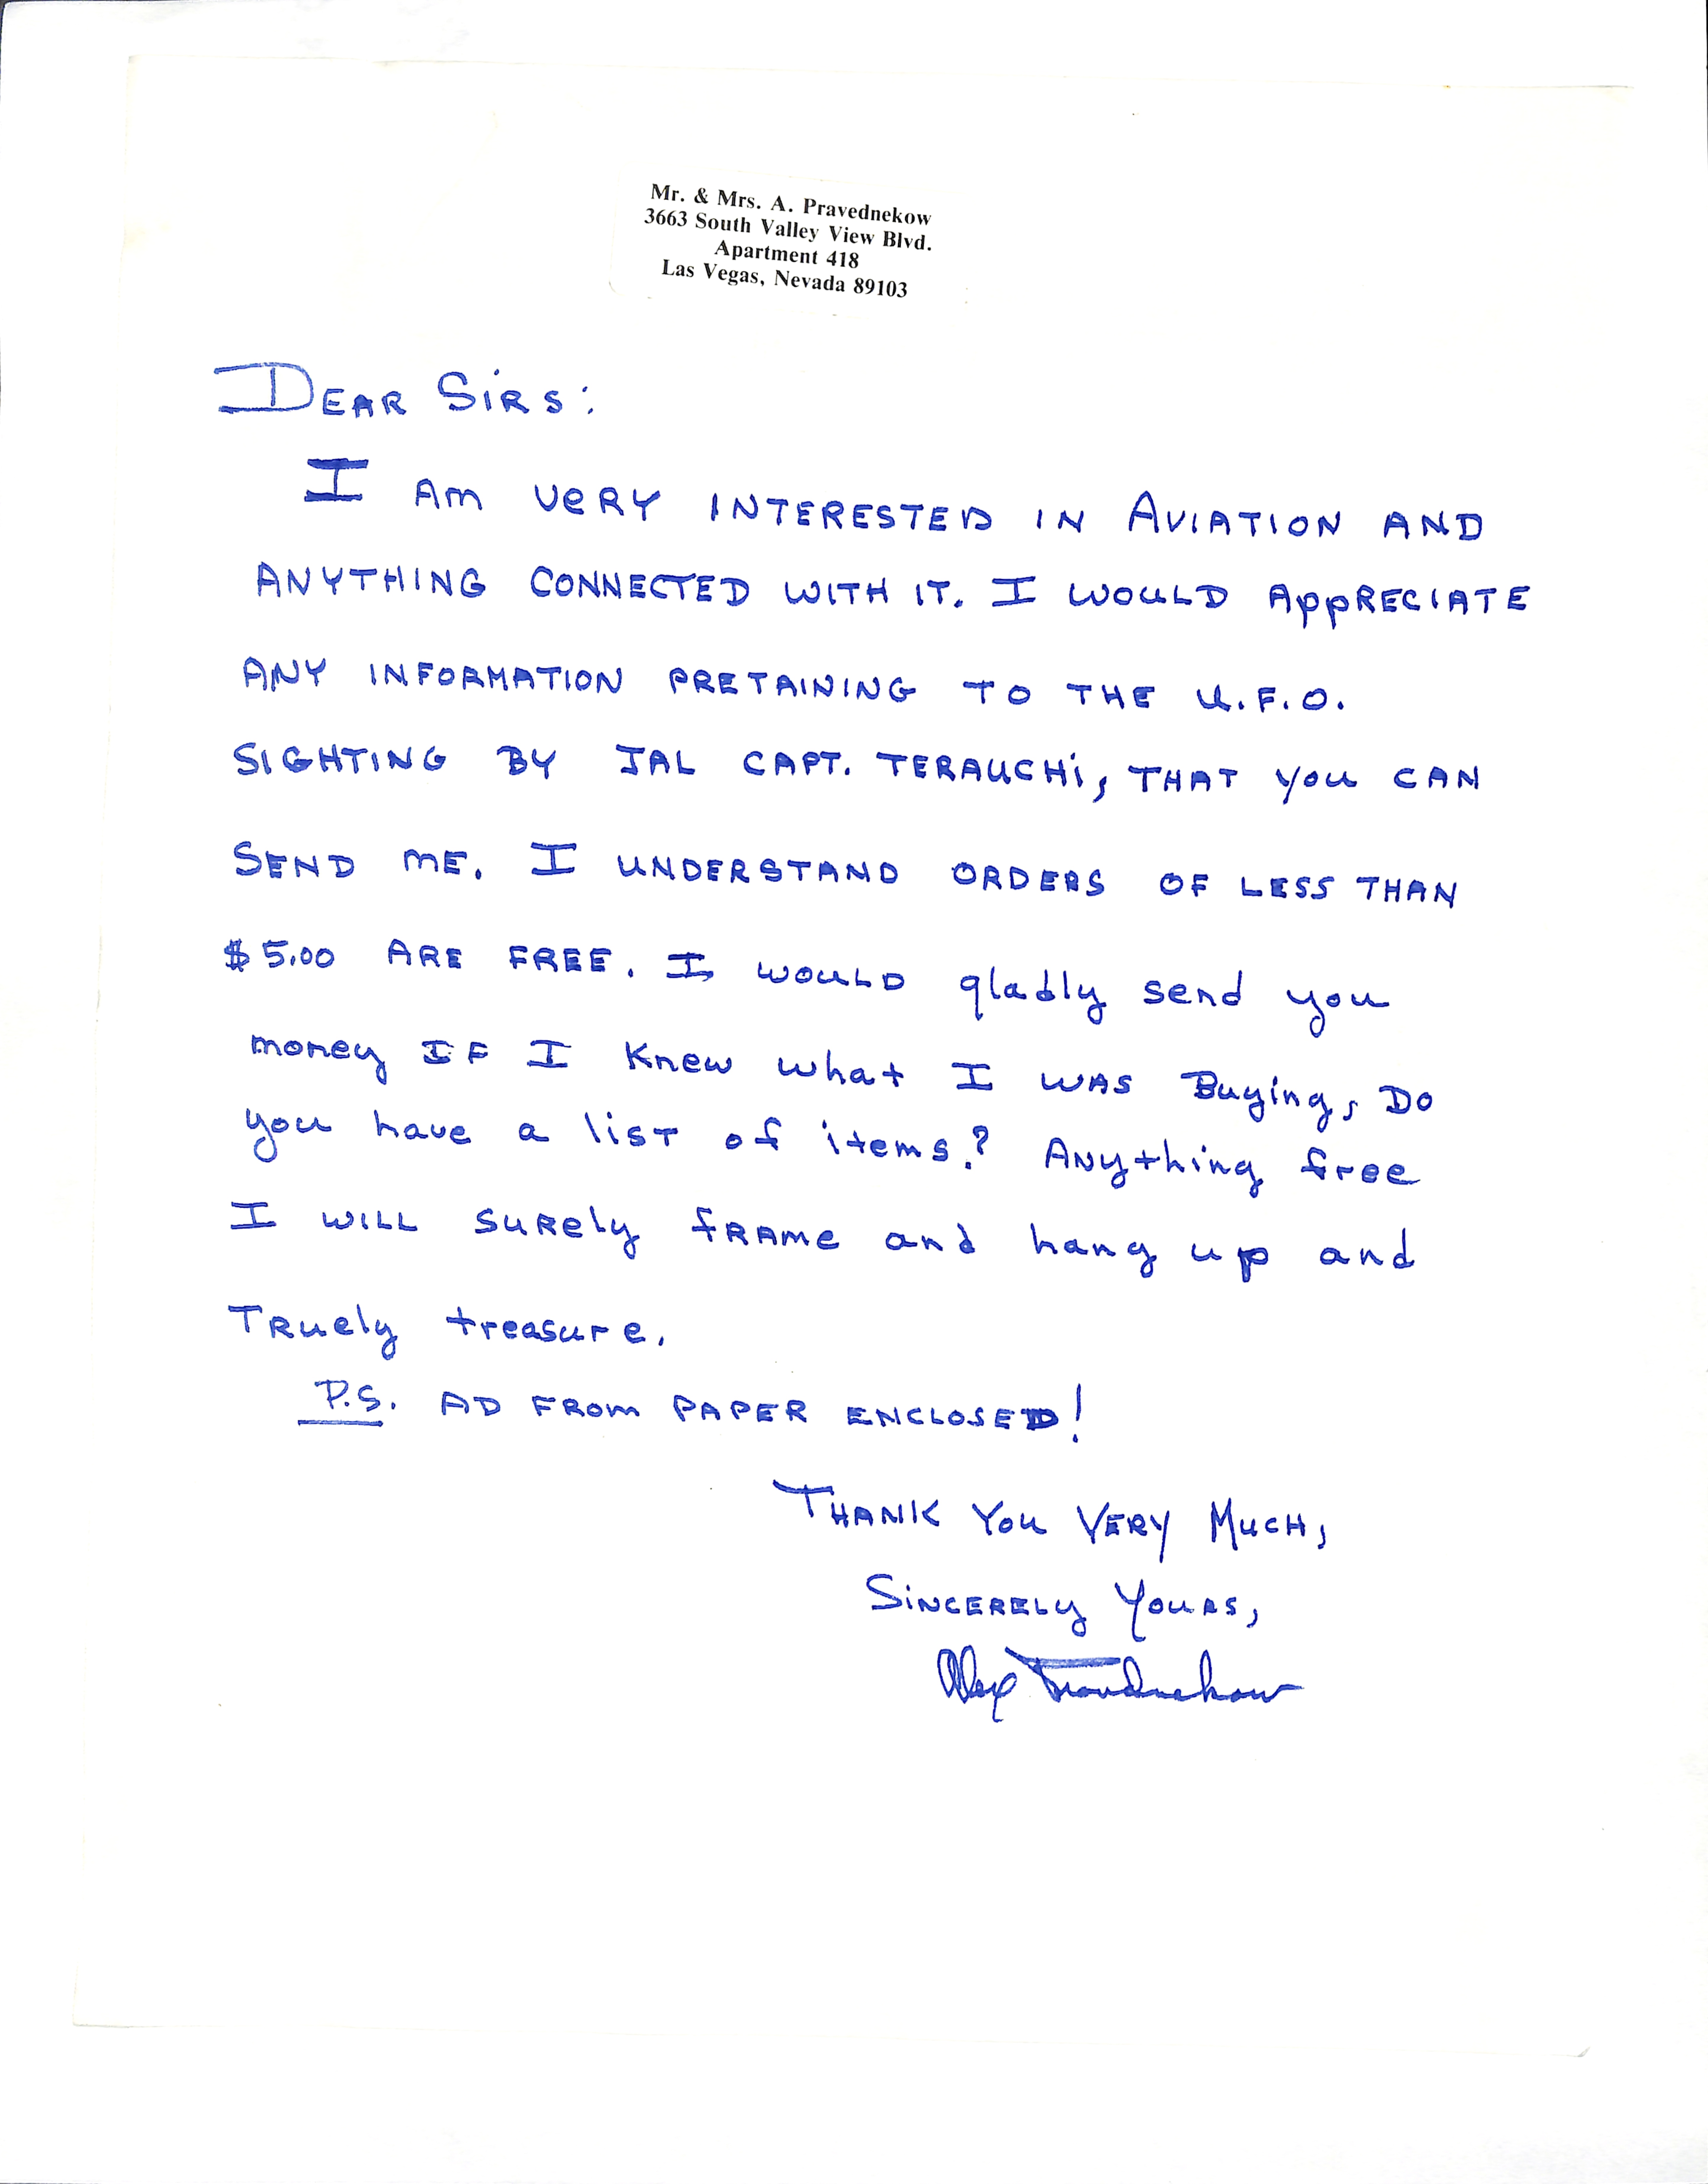 Mr. & Mrs. A. Pravednekow
3663 South Valley View Blvd.
Apartment 418
Las Vegas, Nevada 89103
DEAR SiRS:
I Am VERY INTERESTED IN AVIATION AND
ANYTHING CONNECTED WITH IT. I WOULD APPRECIATE
ANY INFORMATION PRETAINING TO THE U.F.O.
SIGHTING BY JAL CAPT. TERAUCHi, THAT you CAN
SEND ME. I UNDERSTAND ORDERS OF LESS THAN
$5.00 ARE FREE. I WOULD gladly send you
money IF I Knew what I WAS Buying, Do
you have a list of items? Anything free
I WILL SURely fRAMe and hang up and
TRuely treasure.
P.S. AD FROM PAPER ENCLOSED!
THANK YOU VERY MUCH,
SiNCERELy YOURS,
Alex Pravednekow